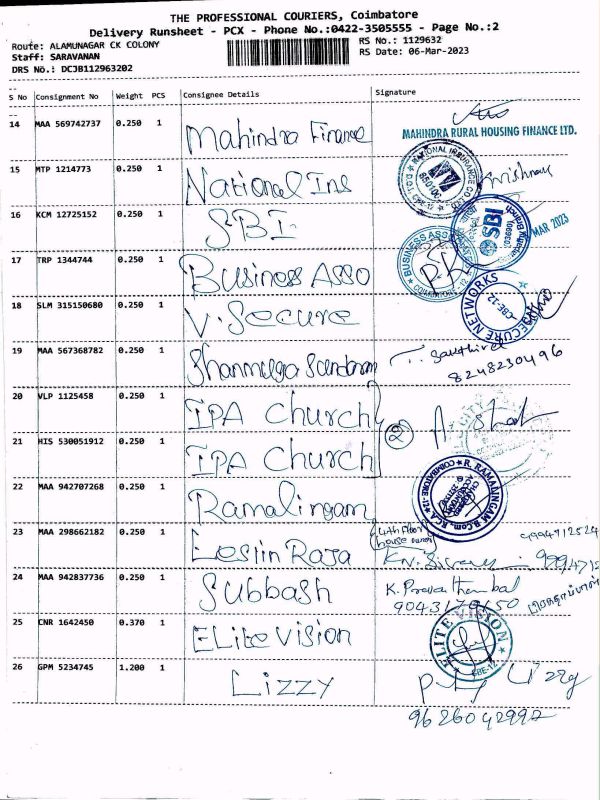 THE PROFESSIONAL COURIERS, Coimbatore
Delivery Runsheet - PCX - Phone No.:0422-3505555 - Page No.:2
Route: ALAMUNAGAR CK COLONY
RS No.: 1129632
Staff: SARAVANAN
RS Date: 06-Mar-2023
DRS No.: DCJB112963202
S No Consignment No Weight PCS Consignee Details Signature
14 MAA 569742737 0.250 1 Mahindra Finance
MAHINDRA RURAL HOUSING FINANCE LTD.
15 MTP 1214773 0.250 1 National Ins
NATIONAL INSURANCE CO
16 KCM 12725152 0.250 1 SBI
SBI
MAR 2023
17 TRP 1344744 0.250 1 Business Asso
BUSINESS ASSO
18 SLM 315150680 0.250 1 V. Secure
SECURE NETWORKS
CBE-12
19 MAA 567368782 0.250 1 Shanmuga Sundaram
8248230496
20 VLP 1125458 0.250 1 IPA Church
2
21 HIS 530051912 0.250 1 IPA Church
22 MAA 942707268 0.250 1 Ramalingam
R. RAMALINGAM B.Com.
23 MAA 298662182 0.250 1 Leslin Raja
4th Floor
24 MAA 942837736 0.250 1 Subbash
25 CNR 1642450 0.370 1 Elite Vision
ELITE VISION
CBE-12
26 GPM 5234745 1.200 1 Lizzy
Lizzy
9626042992